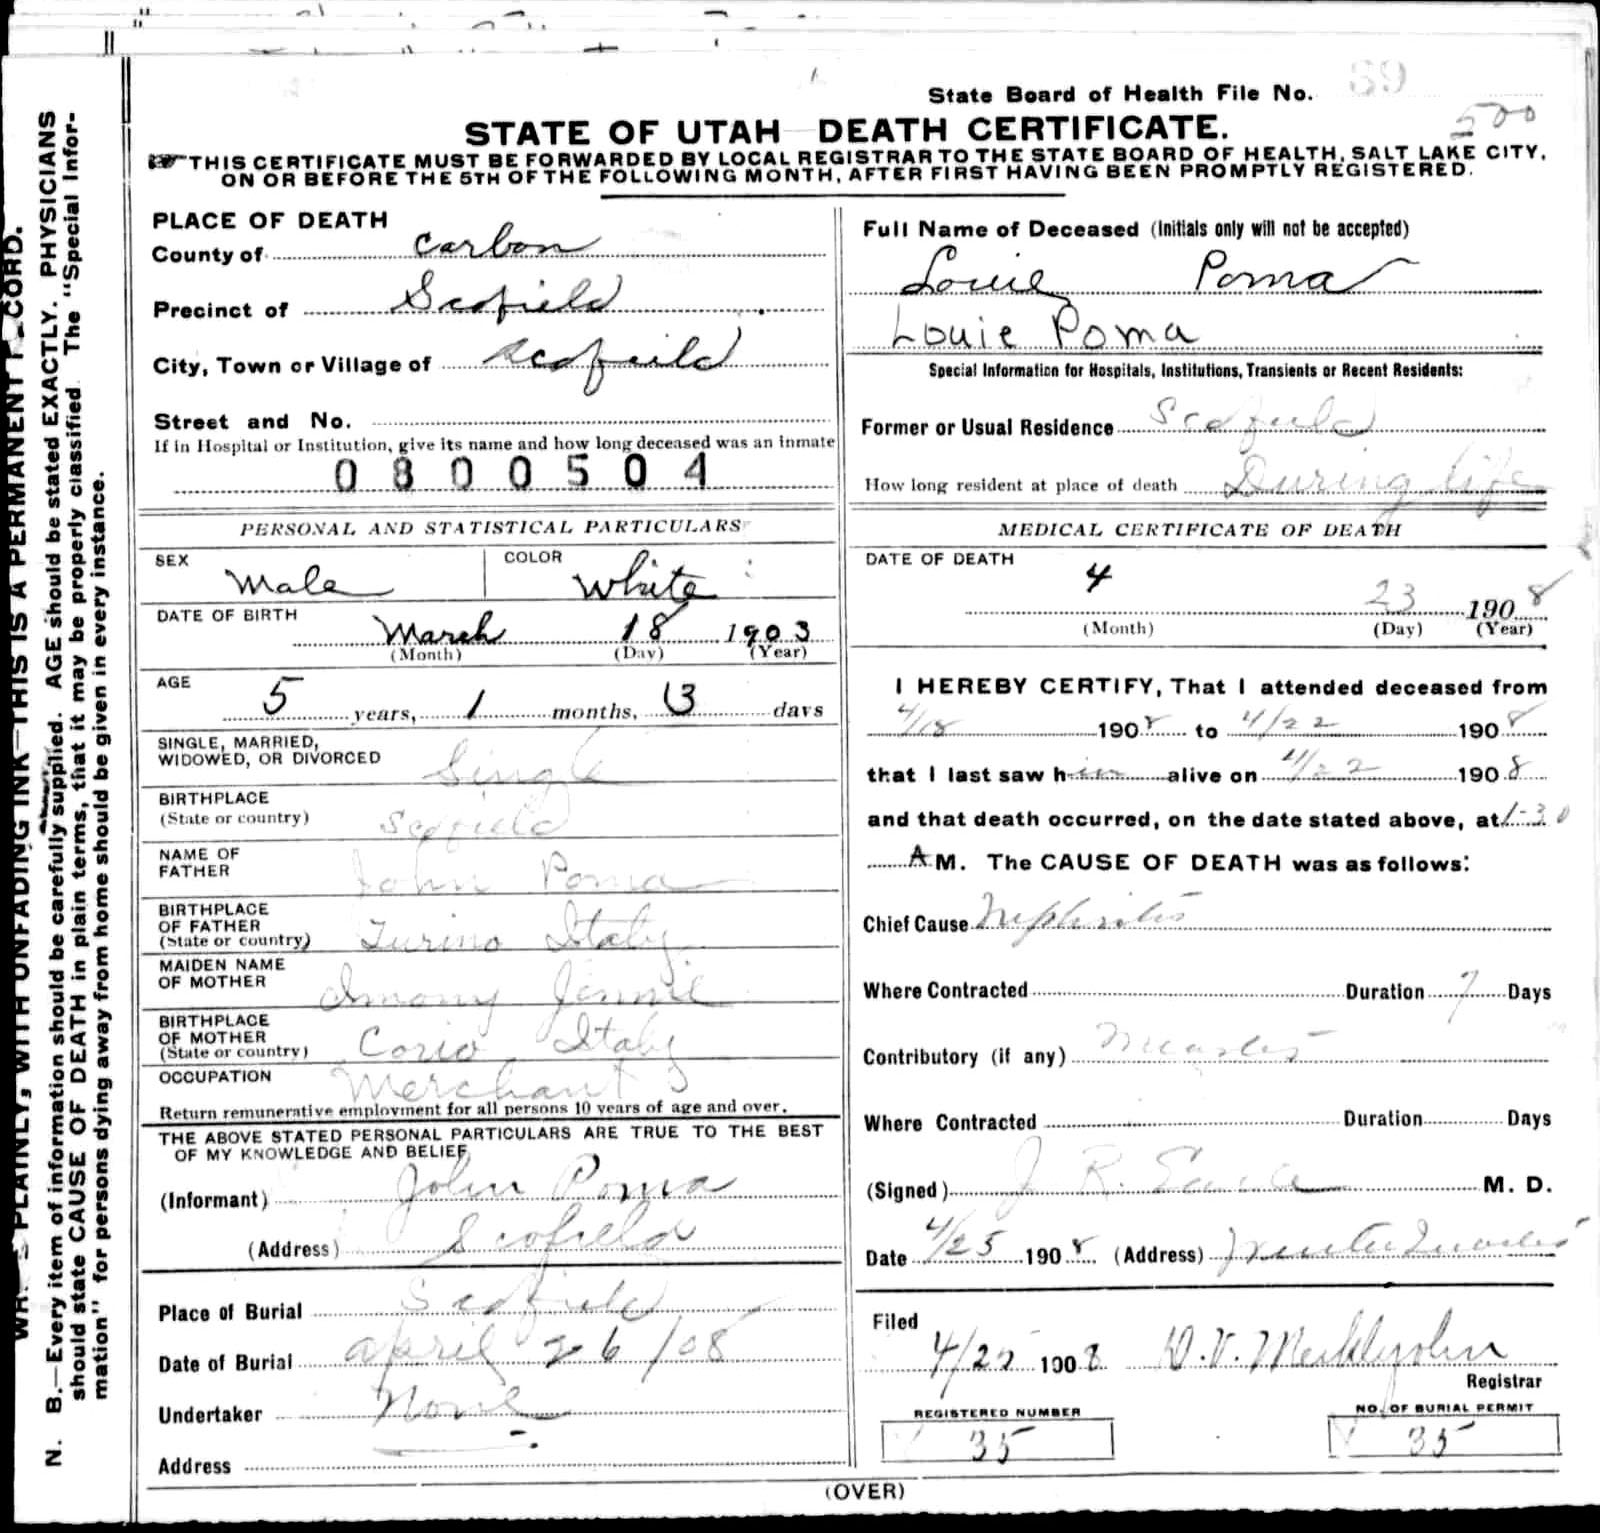 State Board of Health File No. 69
500
STATE OF UTAH DEATH CERTIFICATE.
THIS CERTIFICATE MUST BE FORWARDED BY LOCAL REGISTRAR TO THE STATE BOARD OF HEALTH, SALT LAKE CITY,
ON OR BEFORE THE 5TH OF THE FOLLOWING MONTH, AFTER FIRST HAVING BEEN PROMPTLY REGISTERED.
PLAINLY, WITH UNFADING INK—THIS IS A PERMANENT
N. B.—Every item of information should be carefully supplied. AGE should be stated EXACTLY. PHYSICIANS
should state CAUSE OF DEATH in plain terms, that it may be properly classified. The "Special Infor-
mation" for persons dying away from home should be given in every instance.
PLACE OF DEATH
County of Carbon
Precinct of Scofield
City, Town or Village of Scofield
Street and No.
If in Hospital or Institution, give its name and how long deceased was an inmate
0800504
PERSONAL AND STATISTICAL PARTICULARS
SEX Male COLOR White
DATE OF BIRTH March 18 1903
(Month) (Day) (Year)
AGE 5 years, 1 months, 13 days
SINGLE, MARRIED,
WIDOWED, OR DIVORCED Single
BIRTHPLACE
(State or country) Scofield
NAME OF
FATHER John Poma
BIRTHPLACE
OF FATHER
(State or country) Turino Italy
MAIDEN NAME
OF MOTHER Jennie
BIRTHPLACE
OF MOTHER
(State or country) Corio Italy
OCCUPATION Merchant
Return remunerative employment for all persons 10 years of age and over.
THE ABOVE STATED PERSONAL PARTICULARS ARE TRUE TO THE BEST
OF MY KNOWLEDGE AND BELIEF
(Informant) John Poma
(Address) Scofield
Place of Burial Scofield
Date of Burial April 26/08
Undertaker None
Address
Full Name of Deceased (Initials only will not be accepted)
Louie Poma
Louie Poma
Special Information for Hospitals, Institutions, Transients or Recent Residents:
Former or Usual Residence Scofield
How long resident at place of death During life
MEDICAL CERTIFICATE OF DEATH
DATE OF DEATH
4 23 1908
(Month) (Day) (Year)
I HEREBY CERTIFY, That I attended deceased from
4/18 1908 to 4/22 1908
that I last saw him alive on 4/22 1908
and that death occurred, on the date stated above, at 1-30
AM. The CAUSE OF DEATH was as follows:
Chief Cause Nephritis
Where Contracted Duration 7 Days
Contributory (if any) Measles
Where Contracted Duration Days
(Signed) J R. M. D.
Date 4/25 1908 (Address) Winter Quarters
Filed
4/25 1908 Registrar
REGISTERED NUMBER
35
NO. OF BURIAL PERMIT
35
(OVER)